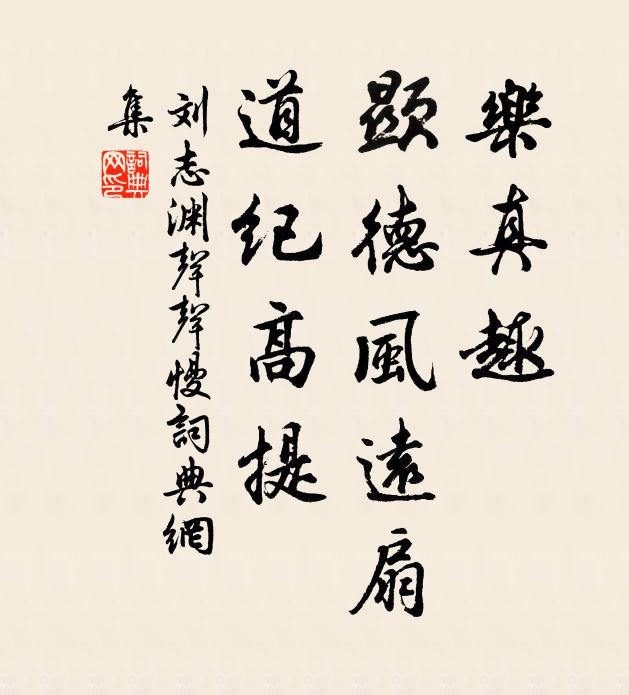 樂真趣
顯德風遠扇
道紀高提
刘志渊聲聲慢詞典網
集
詞典
网印